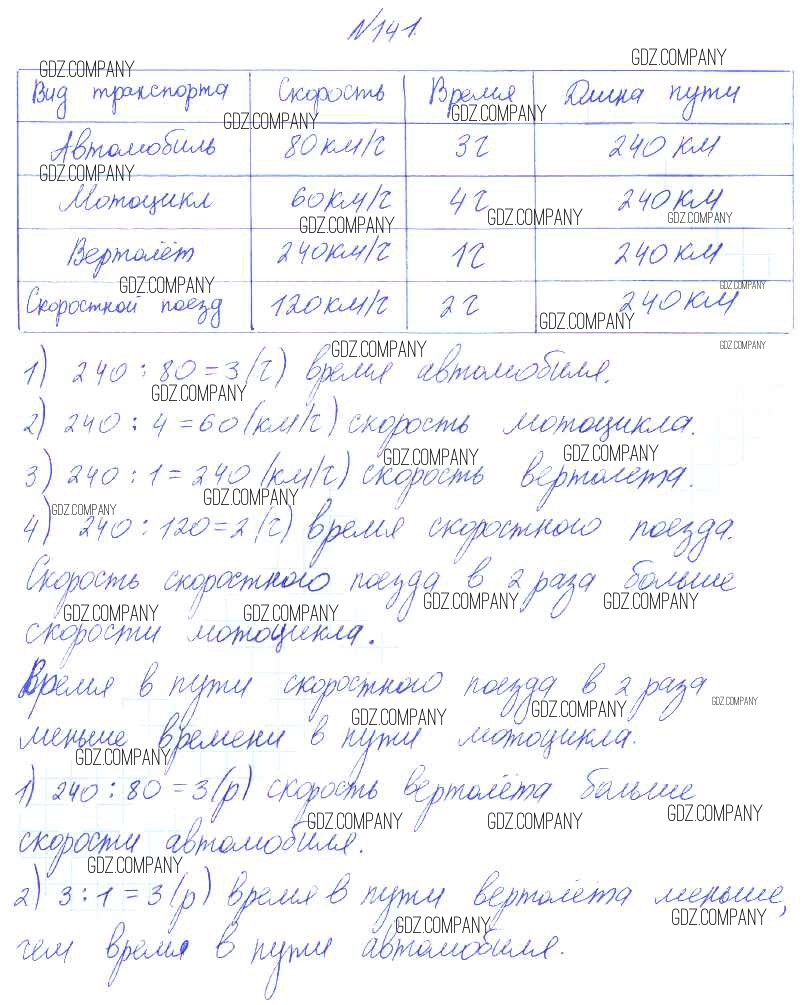 №141.
Вид транспорта Скорость Время Длина пути
Автомобиль 80км/ч 3ч 240 км
Мотоцикл 60км/ч 4ч 240 км
Вертолёт 240км/ч 1ч 240 км
Скоростной поезд 120км/ч 2ч 240 км
1) 240 : 80 = 3 (ч) время автомобиля.
2) 240 : 4 = 60 (км/ч) скорость мотоцикла.
3) 240 : 1 = 240 (км/ч) скорость вертолёта.
4) 240 : 120 = 2 (ч) время скоростного поезда.
Скорость скоростного поезда в 2 раза больше
скорости мотоцикла.
Время в пути скоростного поезда в 2 раза
меньше времени в пути мотоцикла.
1) 240 : 80 = 3 (р) скорость вертолёта больше
скорости автомобиля.
2) 3 : 1 = 3 (р) время в пути вертолёта меньше,
чем время в пути автомобиля.
GDZ.COMPANY